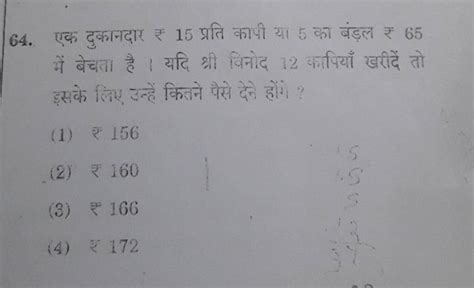 64. एक दुकानदार ₹ 15 प्रति कापी या 5 का बंड़ल ₹ 65
में बेचता है । यदि श्री विनोद 12 कापियाँ खरीदें तो
इसके लिए उन्हें कितने पैसे देने होंगे ?
(1) ₹ 156
(2) ₹ 160
(3) ₹ 166
(4) ₹ 172